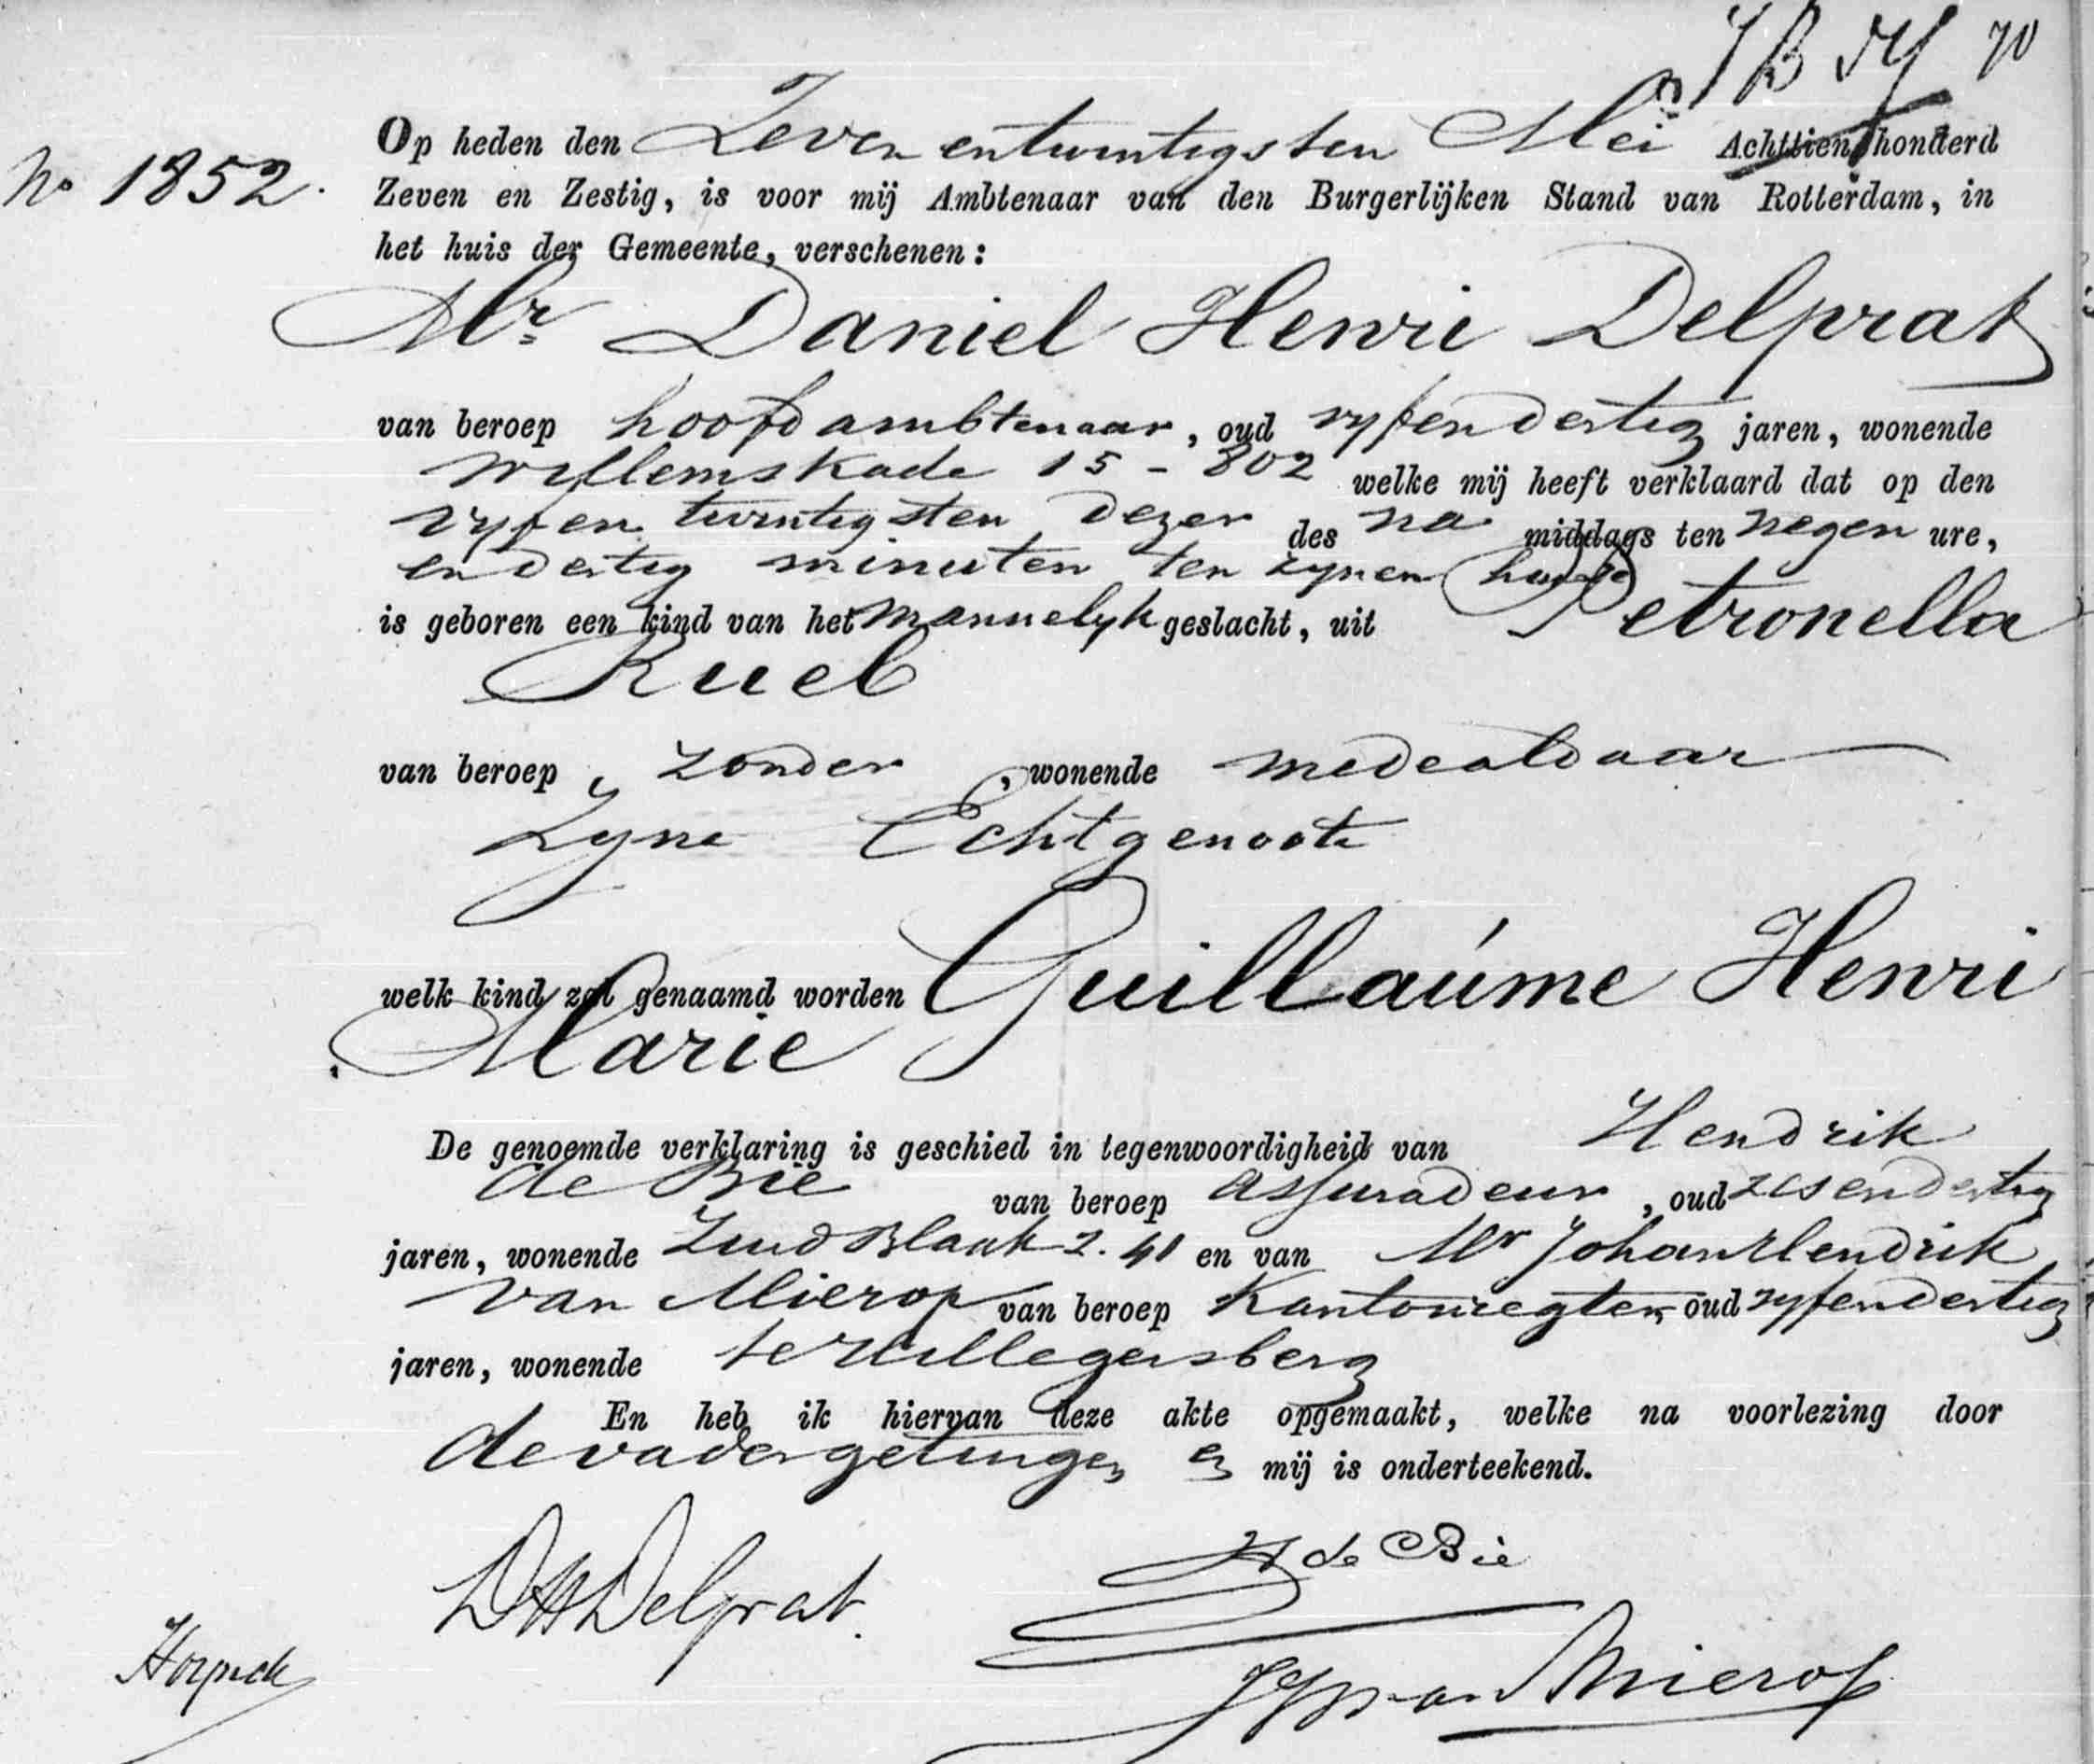 70
No 1852.
Op heden den Zeven entwintigsten Mei Achttienhonderd
Zeven en Zestig, is voor mij Ambtenaar van den Burgerlijken Stand van Rotterdam, in
het huis der Gemeente, verschenen:
Mr Daniel Henri Delprat
van beroep hoofdambtenaar, oud vyfendertig jaren, wonende
Willemskade 15 - 802 welke mij heeft verklaard dat op den
vyfen twintigsten dezer des na middags ten negen ure,
en dertig minuten ten zynen huize
is geboren een kind van het mannelyk geslacht, uit Petronella
Rueb
van beroep, zonder, wonende medealdaar
Zyne Echtgenoote
welk kind zal genaamd worden Guillaúme Henri
Marie
De genoemde verklaring is geschied in tegenwoordigheid van Hendrik
de Bie van beroep assuradeur, oud zesendertig
jaren, wonende Zuid Blaak 2. 41 en van Mr Johan Hendrik
van Mierop van beroep Kantonregter, oud vyfendertig
jaren, wonende te Hillegersberg
En heb ik hiervan deze akte opgemaakt, welke na voorlezing door
de vader getuigen en mij is onderteekend.
DH Delprat.
H de Bie
JH van Mierop